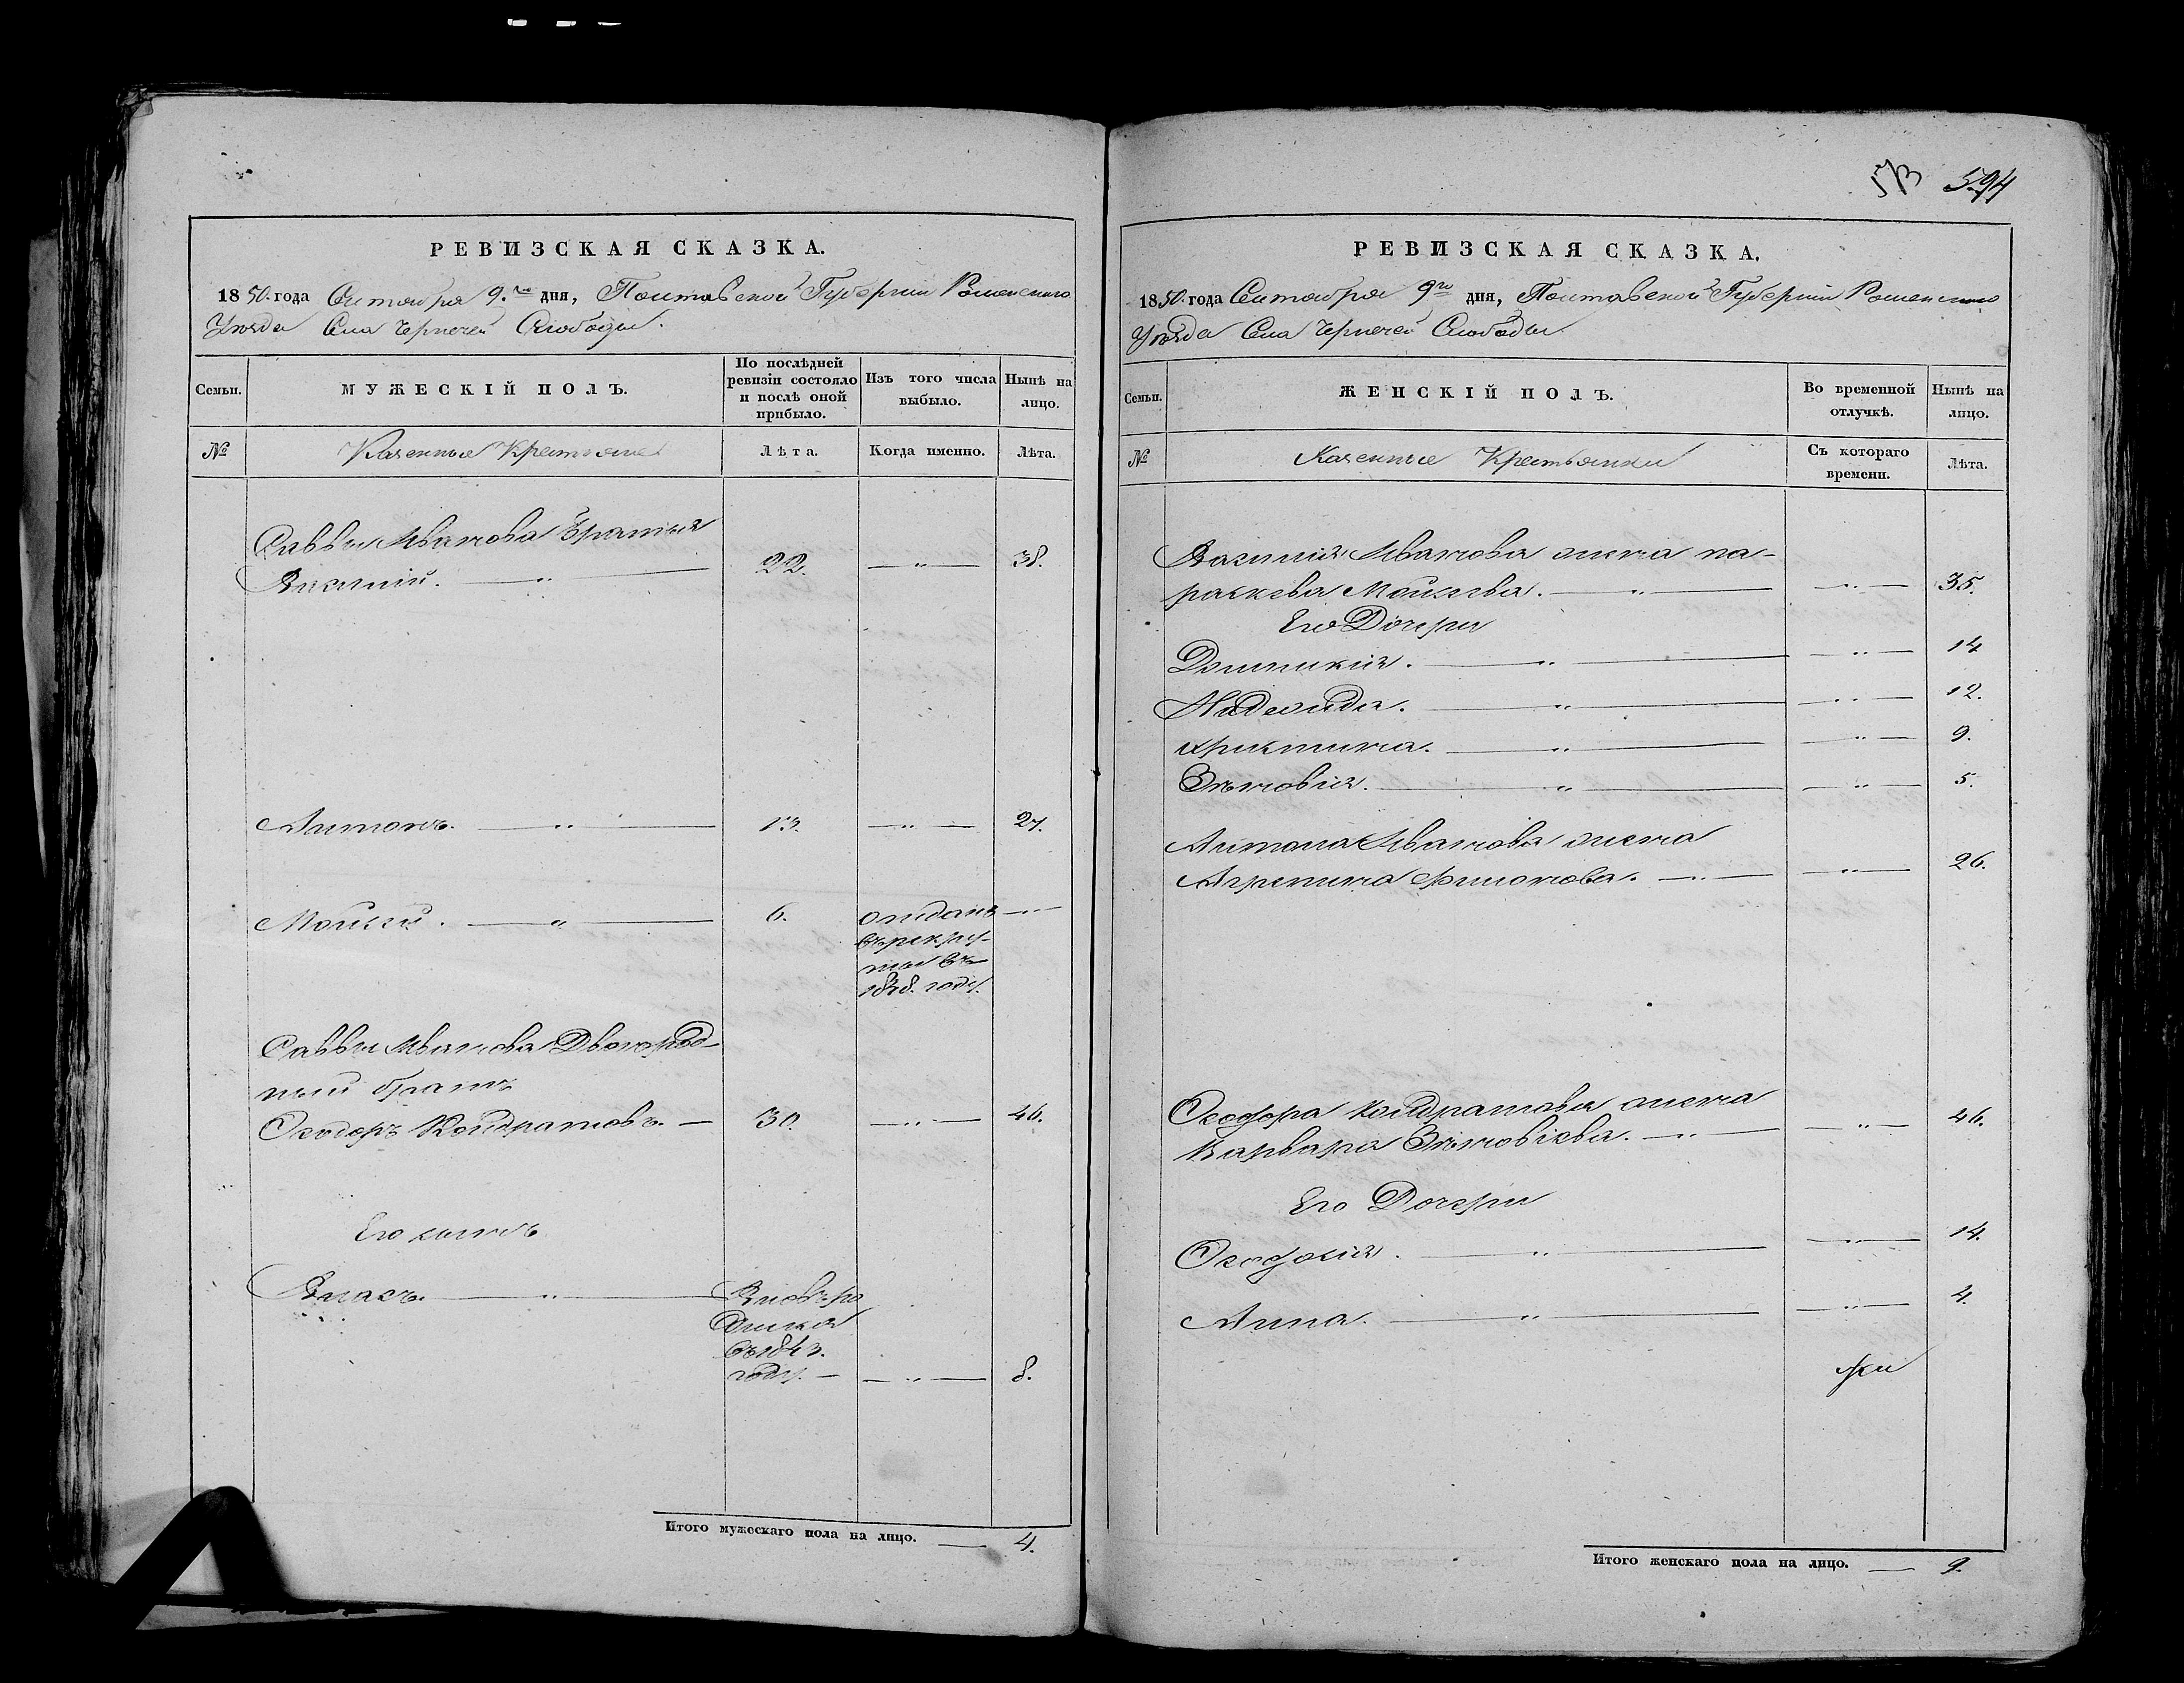 573 594
РЕВИЗСКАЯ СКАЗКА.
1850. года Сентября 9.го дня, Полтавской Губернии Роменского
Уезда Села Чернечей Слободы.
Семьи.
МУЖЕСКІЙ ПОЛЪ.
По послѣдней ревизіи состояло и послѣ оной прибыло.
Изъ того числа выбыло.
Нынѣ на лицо.
№
Казенные Крестьяне
Лѣта.
Когда именно.
Лѣта.
Саввы Иванова братья
Василий. — " — 22. — " — 38.
Антонъ. — " — 13. — " — 29.
Моисей. — " — 6. отданъ — " —
въ рекру-
ты въ
1848. году.
Саввы Иванова Двоюрод-
ный братъ
Феодоръ Кондратовъ. — 30. — " — 46.
Его сынъ
Власъ. — " — Вновь ро
дился
въ 1843.
году. — — " — 8.
Итого мужескаго пола на лицо. — 4.
РЕВИЗСКАЯ СКАЗКА.
1850. года Сентября 9го дня, Полтавской Губернии Роменского
Уѣзда Села Чернечей Слободы
Семьи.
ЖЕНСКІЙ ПОЛЪ.
Во временной отлучкѣ.
Нынѣ на лицо.
№
Казенные Крестьянки
Съ котораго времени.
Лѣта.
Василия Иванова жена Па-
раскева Моисеева. — " — — " — 35.
Его Дочери
Домникия. — " — — " — 14
Надежда. — " — — " — 12.
Христина. — " — — " — 9.
Зѣновия. — " — — " — 5.
Антона Иванова жена
Агрепина Филонова. — " — — " — 26.
Феодора Кондратова жена
Варвара Зѣновіева. — " — — " — 46.
Его Дочери
Феодосія. — " — — " — 14.
Анна. — " — — " — 4.
Итого женскаго пола на лицо. — 9.